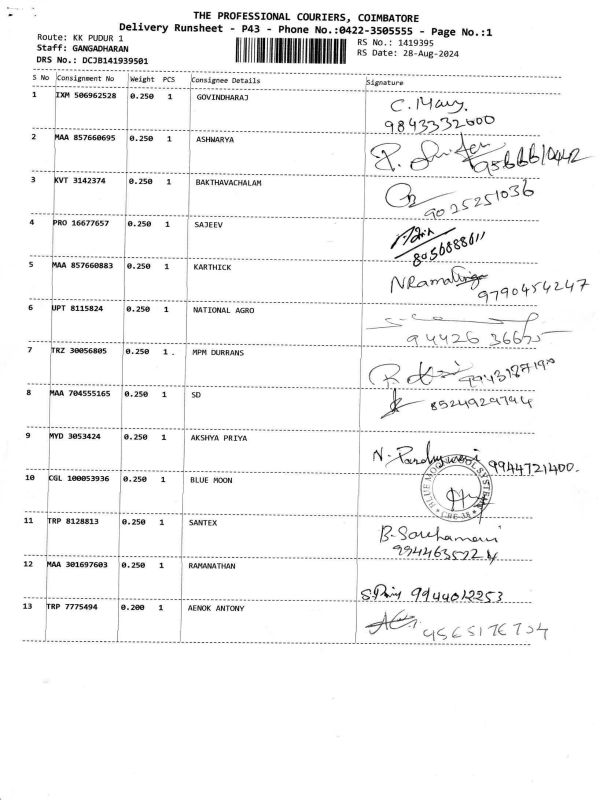 THE PROFESSIONAL COURIERS, COIMBATORE
Delivery Runsheet - P43 - Phone No.:0422-3505555 - Page No.:1
Route: KK PUDUR 1
Staff: GANGADHARAN
DRS No.: DCJB141939501
RS No.: 1419395
RS Date: 28-Aug-2024
S No Consignment No Weight PCS Consignee Details Signature
1 IXM 506962528 0.250 1 GOVINDHARAJ C. Mary.
9843332600
2 MAA 857660695 0.250 1 ASHWARYA
3 KVT 3142374 0.250 1 BAKTHAVACHALAM
9025251036
4 PRO 16677657 0.250 1 SAJEEV
8056888611
5 MAA 857660883 0.250 1 KARTHICK
9790454247
6 UPT 8115824 0.250 1 NATIONAL AGRO
7 TRZ 30056805 0.250 1 . MPM DURRANS
8 MAA 704555165 0.250 1 SD 8524929794
9 MYD 3053424 0.250 1 AKSHYA PRIYA
9944721400.
10 CGL 100053936 0.250 1 BLUE MOON
11 TRP 8128813 0.250 1 SANTEX
12 MAA 301697603 0.250 1 RAMANATHAN
9944012253
13 TRP 7775494 0.200 1 AENOK ANTONY